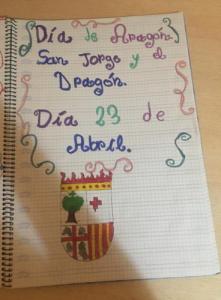 Día de Aragón.
San Jorge y el
Dragón.
Día 23 de
Abril.